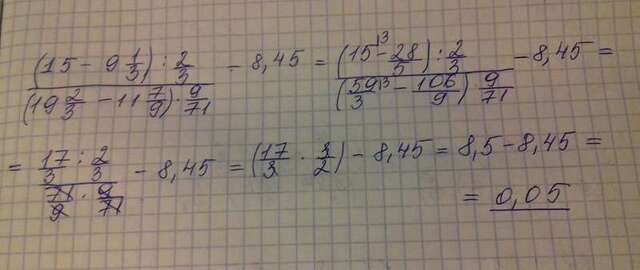 (15 - 9 1/3) : 2/3 / (19 2/3 - 11 7/9) · 9/71 - 8,45 = (15¹³ - 28/3) : 2/3 / (59/3¹³ - 106/9) 9/71 - 8,45 =
= 17/3 : 2/3 / 71/9 · 9/71 - 8,45 = (17/3 · 3/2) - 8,45 = 8,5 - 8,45 =
= 0,05